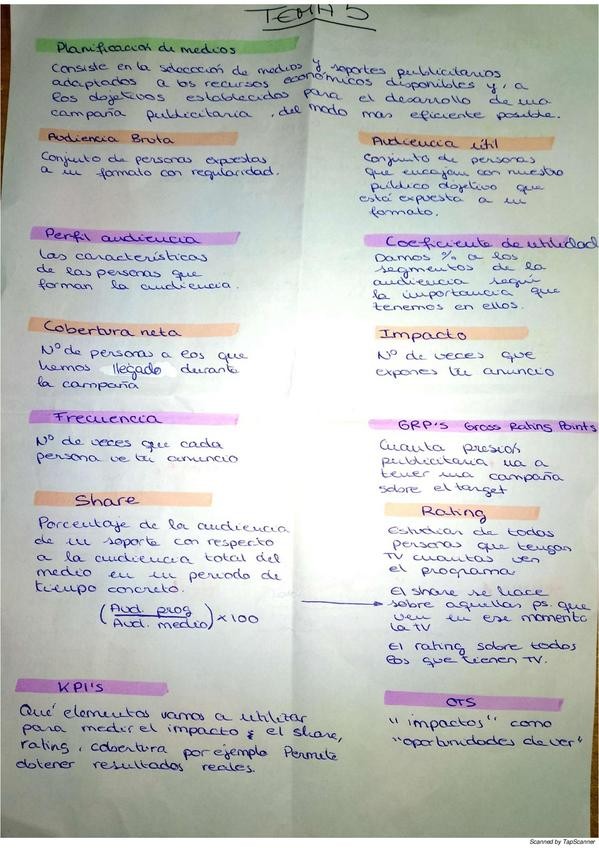 TEMA 5
Planificación de medios
Consiste en la selección de medios y soportes publicitarios
adaptados a los recursos económicos disponibles y, a
los objetivos establecidos para el desarrollo de una
campaña publicitaria, del modo mas eficiente posible.
Audiencia Bruta
Conjunto de personas expuestas
a un formato con regularidad.
Audiencia útil
Conjunto de personas
que encajan con nuestro
público objetivo que
está expuesta a un
formato.
Perfil audiencia
Las características
de las personas que
forman la audiencia.
Coeficiente de utilidad
Damos % a los
segmentos de la
audiencia según
la importancia que
tenemos en ellos.
Cobertura neta
Nº de personas a los que
hemos llegado durante
la campaña
Impacto
Nº de veces que
expones tu anuncio
Frecuencia
Nº de veces que cada
persona ve tu anuncio
GRP's Gross Rating Points
Cuanta presión
publicitaria va a
tener una campaña
sobre el target
Share
Porcentaje de la audiencia
de un soporte con respecto
a la audiencia total del
medio en un periodo de
tiempo concreto.
(Aud. prog / Aud. medio) x 100
Rating
Estudian de todas
personas que tengan
TV cuantas ven
el programa
El share se hace
sobre aquellas ps. que
ven en ese momento
la TV
El rating sobre todos
los que tienen TV.
KPI's
Qué elementos vamos a utilizar
para medir el impacto & el share,
rating, cobertura por ejemplo Permite
obtener resultados reales.
OTS
"impactos" como
"oportunidades de ver"
Scanned by TapScanner